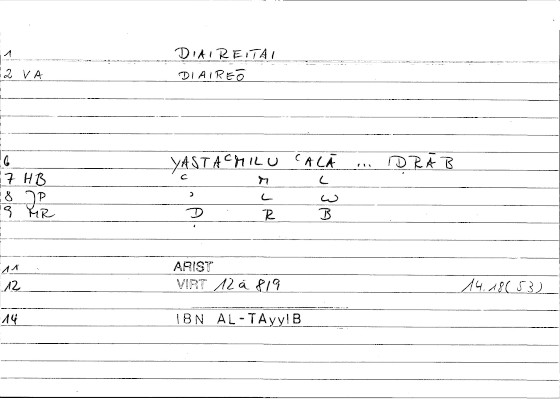 1 DIAIREITAI
2 VA DIAIREŌ
6 YASTAʿMILU ʿALĀ ... ḌRĀB
7 HB ʿ M L
8 JP ʾ L W
9 MR Ḍ R B
11 ARIST
12 VIRT 12 a 8/9 14.18(53)
14 IBN AL-TAyyIB